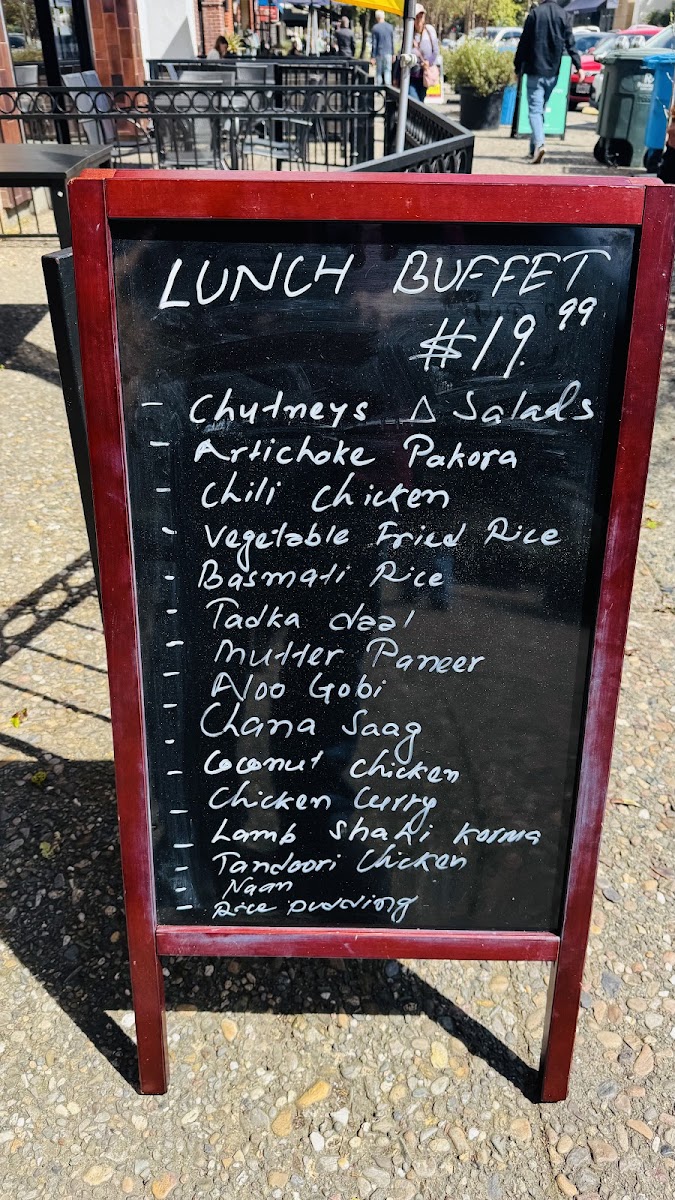 LUNCH BUFFET
$19.99
- Chutneys & Salads
- Artichoke Pakora
- Chili Chicken
- Vegetable Fried Rice
- Basmati Rice
- Tadka daal
- Mutter Paneer
- Aloo Gobi
- Chana Saag
- Coconut chicken
- Chicken Curry
- Lamb Shahi Korma
- Tandoori Chicken
- Naan
- Rice pudding